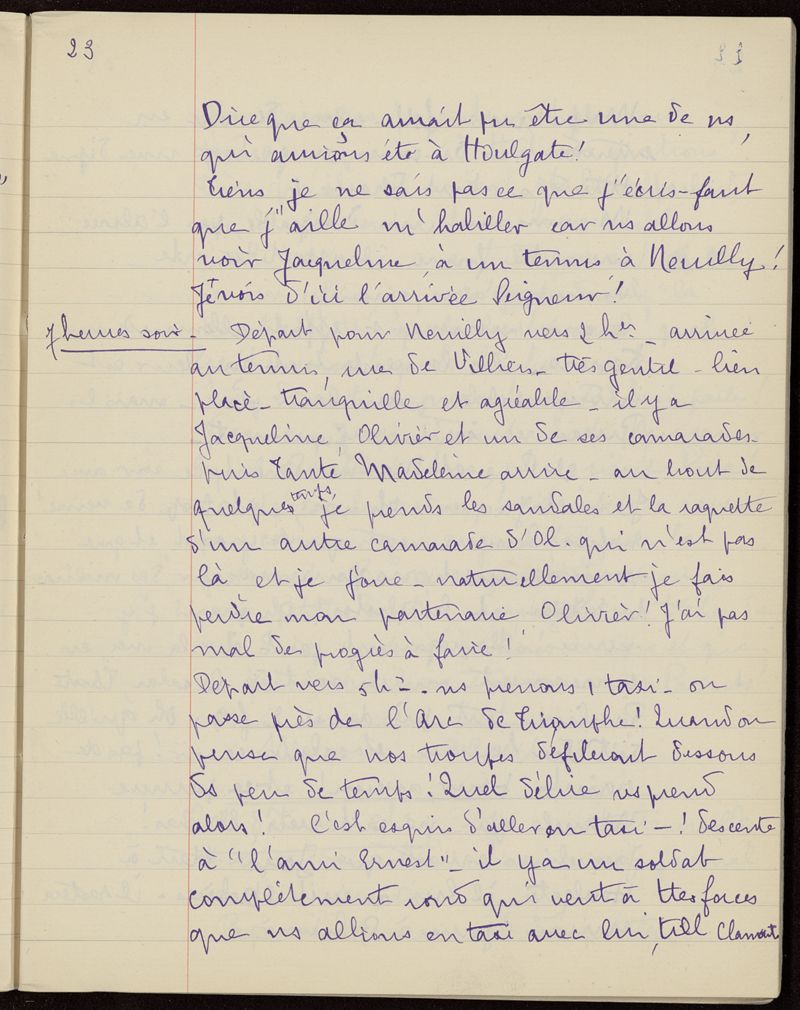 23
Dire que ça aurait pu être une de ns,
qui aurions été à Houlgate!
Tiens je ne sais pas ce que j'écris - faut
que j'aille m'habiller car ns allons
voir Jacqueline, à un tennis à Neuilly!
Je vois d'ici l'arrivée Seigneur!
7 heures soir - Départ pour Neuilly vers 2 hes - arrivée
au tennis, rue de Villiers - très gentil - bien
placé - tranquille et agréable - il y a
Jacqueline, Olivier et un de ses camarades -
puis Tante Madeleine arrive - au bout de
quelques temps je prends les sandales et la raquette
d'un autre camarade d'Ol. qui n'est pas
là et je joue - naturellement je fais
perdre mon partenaire Olivier! J'ai pas
mal des progrès à faire!
Départ vers 5h - ns prenons 1 taxi - on
passe près de l'Arc de Triomphe! Quand on
pense que nos troupes défileront dessous
ds peu de temps! Quel délire ns prend
alors! C'est exquis d'aller en taxi - ! descente
à "l'ami Ernest" - il y a un soldat
complètement rond qui veut à ttes forces
que ns allions en taxi avec lui,